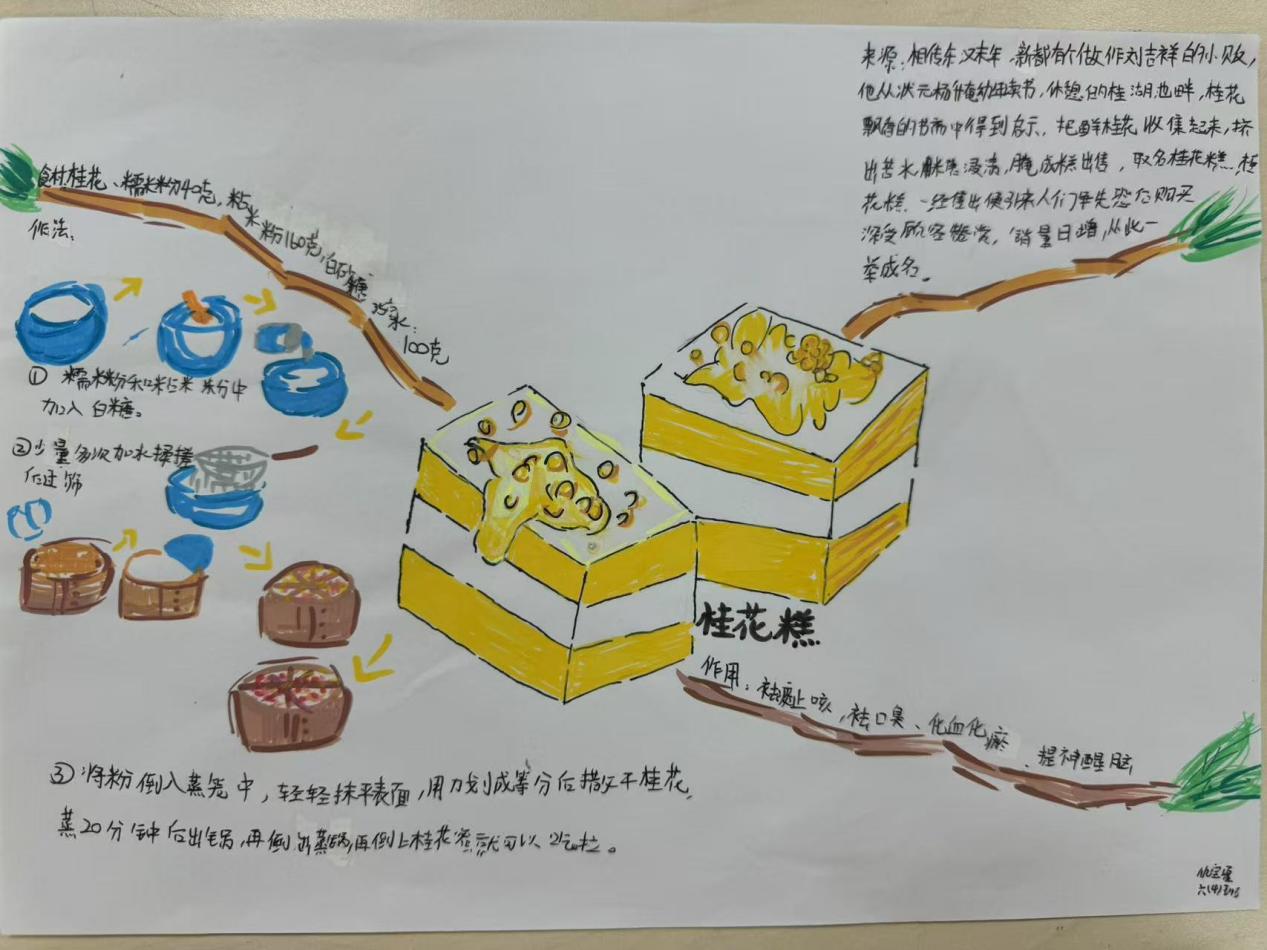 来源：相传东汉末年，新都有个做作刘吉祥的小贩，
他从状元杨慎幼年读书，休憩的桂湖边畔，桂花
飘香的书斋中得到启示，把鲜桂花收集起来，挤
出苦水，浸渍，腌成糕出售，取名桂花糕，桂
花糕、一经售出便引来人们争先恐后购买
深受顾客，销量日增，从此一
举成名。
食材桂花、糯米粉40克，粘米粉160克，白砂糖35 水：100克
作法：
① 糯米粉和粘米粉中
加入白糖。
②少量多次加水揉搓
后过筛
桂花糕
作用：祛痰止咳，祛口臭、化血化瘀、提神醒脑
③将粉倒入蒸笼中，轻轻抹平表面，用刀划成等分后撒干桂花，
蒸20分钟后出锅，再倒出蒸锅再倒上桂花蜜就可以
六(4)